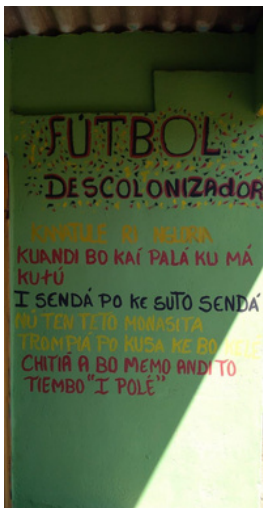 FÚTBOL
DESCOLONIZADOR
KUANDI BO KAÍ PALÁ KU MÁ
KUTÚ
I SENDÁ PO KE SUTO SENDÁ
NÚ TEN TETO MONASITA
TROMPIÁ PO KUSA KE BO
CHITIÁ A BO MEMO ANDI TO
TIEMBO "I POLÉ"